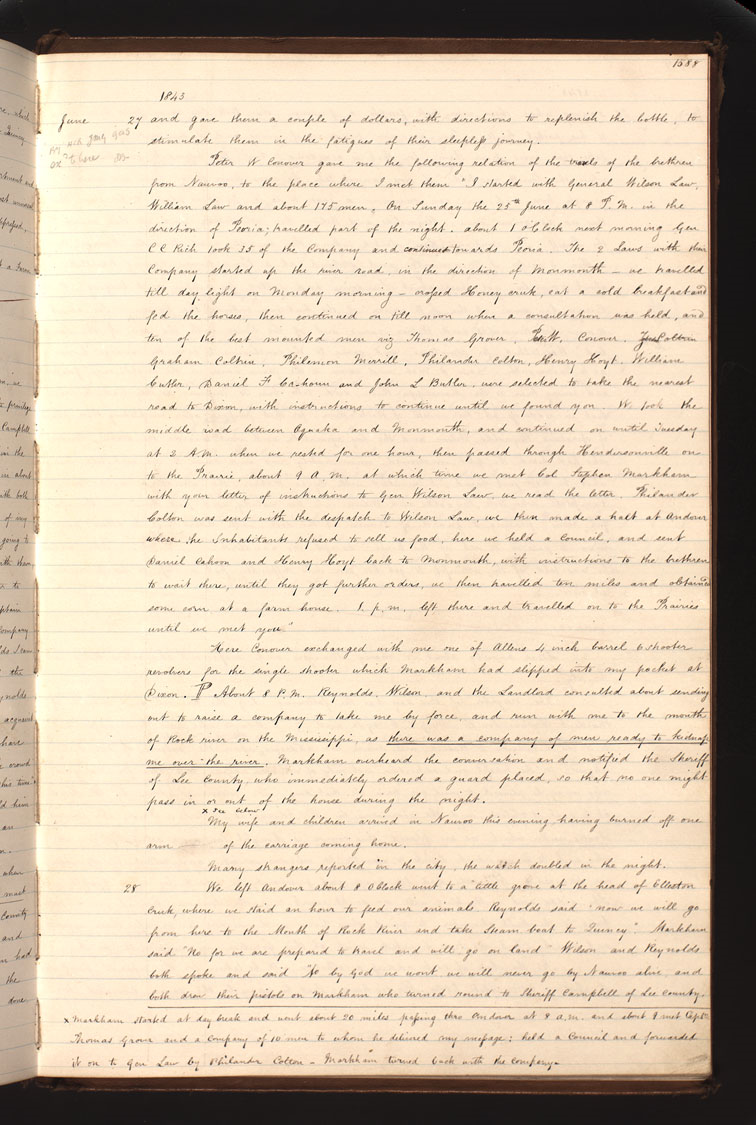 1588
1843
June 27 and gave them a couple of dollars, with directions to replenish the bottle, to
stimulate them in the fatigues of their sleepless journey.
Peter W Conover gave me the following relation of the travels of the brethren
from Nauvoo, to the place where I met them "I started with General Wilson Law,
William Law and about 175 men, On Sunday the 25th June at 8 P.M. in the
direction of Peoria; travelled part of the night. about 1 o'Clock next morning Gen
C C Rich took 35 of the Company and continued towards Peoria. The 2 Laws with their
Company started up the river road, in the direction of Monmonth — we travelled
till day light on Monday morning — crossed Honey creek, eat a cold breakfast and
fed the horses, then continued on till noon when a consultation was held, and
ten of the best mounted men viz Thomas Grover, P. W. Conover,
Graham Coltrin, Philemon Merrill, Philander Colton, Henry Hoyt, William
Cutler, Daniel F Cahoon and John L Butler, were selected to take the nearest
road to Dixon, with instructions to continue until we found you. We took the
middle road between Oquaka and Monmonth, and continued on until Tuesday
at 2 A.M. when we rested for one hour, then passed through Hendersonville on
to the Prairie, about 9 A.M. at which time we met Col Stephen Markham
with your letter of instructions to Gen Wilson Law, we read the letter, Philander
Colton was sent with the despatch to Wilson Law, we then made a halt at Andover
where the Inhabitants refused to sell us food, here we held a Council, and sent
Daniel Cahoon and Henry Hoyt back to Monmouth, with instructions to the brethren
to wait there, until they got further orders, we then travelled ten miles and obtained
some corn at a farm house. 1. p.m. left there and travelled on to the Prairies
until we met you."
Here Conover exchanged with me one of Allens 4 inch barrel 6 shooter
revolvers for the single shooter which Markham had slipped into my pocket at
Dixon. ¶ About 8 P.M. Reynolds, Wilson, and the Landlord consulted about sending
out to raise a company to take me by force, and run with me to the mouth
of Rock river on the Mississippi, as there was a company of men ready to kidnap
me over the river, Markham overheard the conversation and notified the Sheriff
of Lee County, who immediately ordered a guard placed, so that no one might
pass in or out of the house during the night.
x see below
My wife and children arrived in Nauvoo this evening having burned off one
arm of the carriage coming home.
Many strangers reported in the city, the watch doubled in the night.
28 We left Andover about 8 o Clock went to a little grove at the head of Elleston
Creek, where we staid an hour to feed our animals. Reynolds said "now we will go
from here to the Mouth of Rock River and take Steam boat to Quincy." Markham
said "No for we are prepared to travel and will go on land" Wilson and Reynolds
both spoke and said "No by God we wont we will never go by Nauvoo alive, and
both drew their pistols on Markham who turned round to Sheriff Campbell of Lee County,
x Markham started at day break and went about 20 miles passing thro Andover at 8 a.m. and about 9 met Captn
Thomas Grover and a company of 10 men to whom he delivered my message; held a Council and forwarded
it on to Gen Law by Philander Colton — Markham turned back with the company —